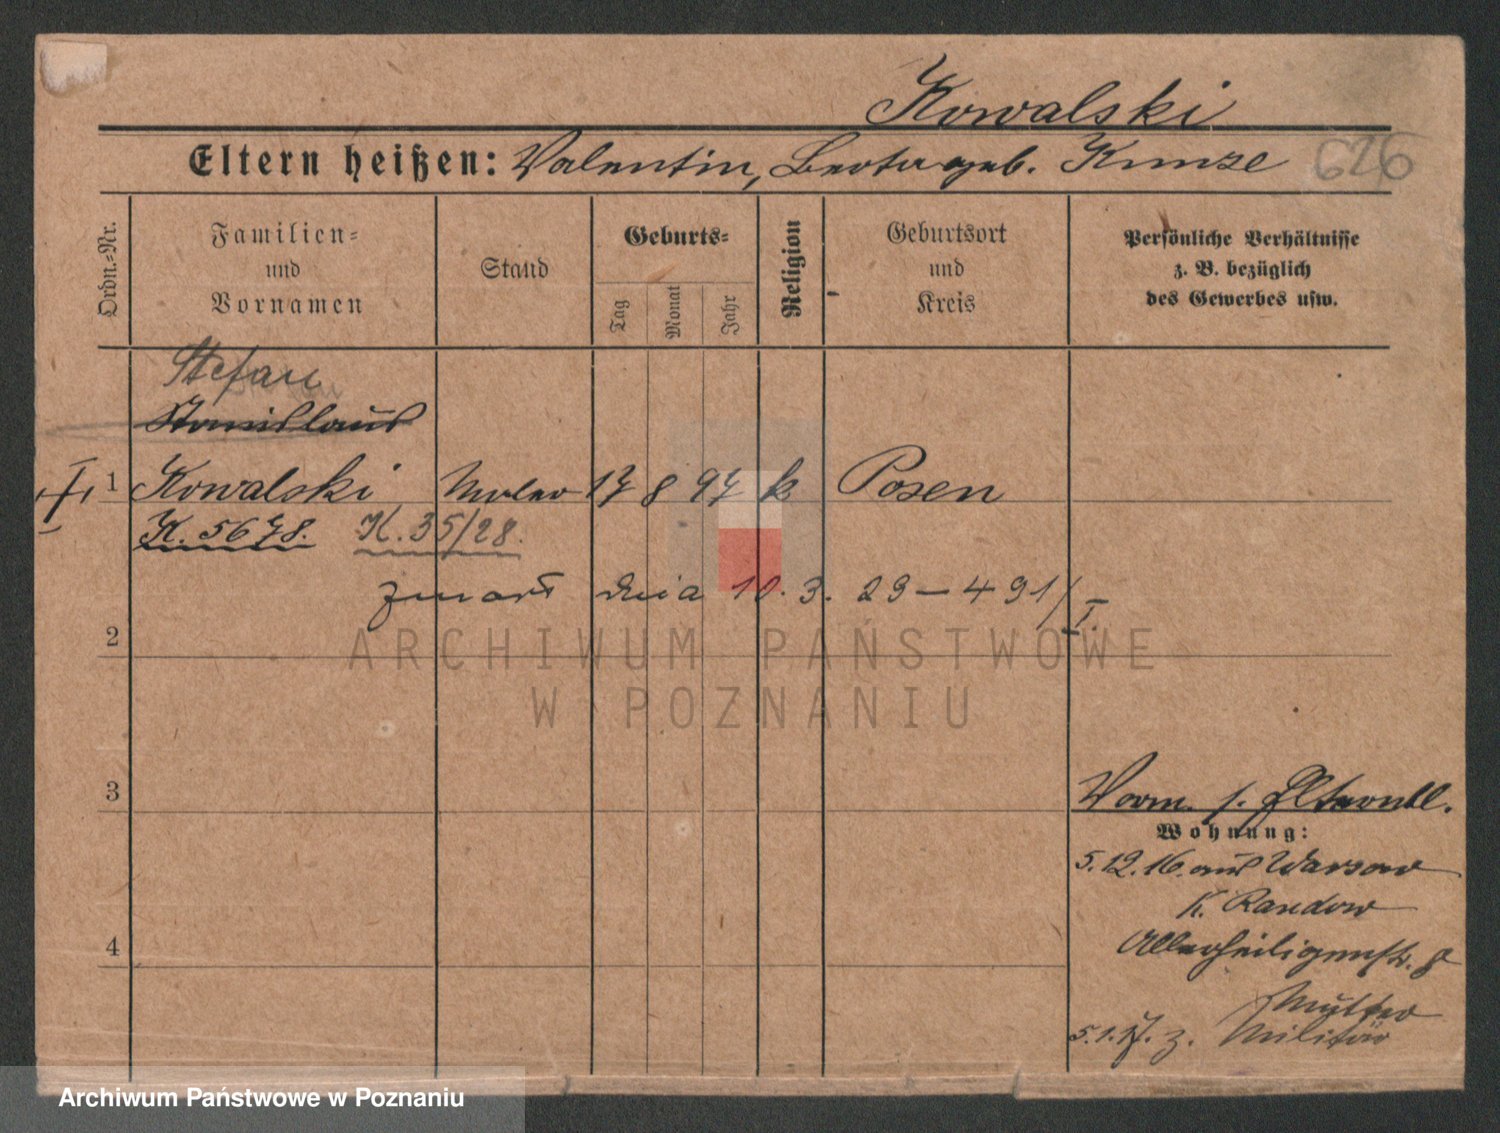 Kowalski
Eltern heißen: Valentin, Berta geb. Kunze 626
Ordn.-Nr.
Familien-
und
Vornamen
Stand
Geburts-
Tag
Monat
Jahr
Religion
Geburtsort
und
Kreis
Persönliche Verhältnisse
z. B. bezüglich
des Gewerbes usw.
Stefan
Stanislaus
1 Kowalski Maler 17 8 97 k Posen
K. 5678. K. 35/28.
zmarł dnia 10. 3. 29 — 491/I.
2
3
Vorm. s. Elternbl.
Wohnung:
5.12.16. aus Warsow
K. Randow
4
Allerheiligenstr. 8
Mutter
5.1.17. z. Militär
ARCHIWUM PAŃSTWOWE
W POZNANIU
Archiwum Państwowe w Poznaniu